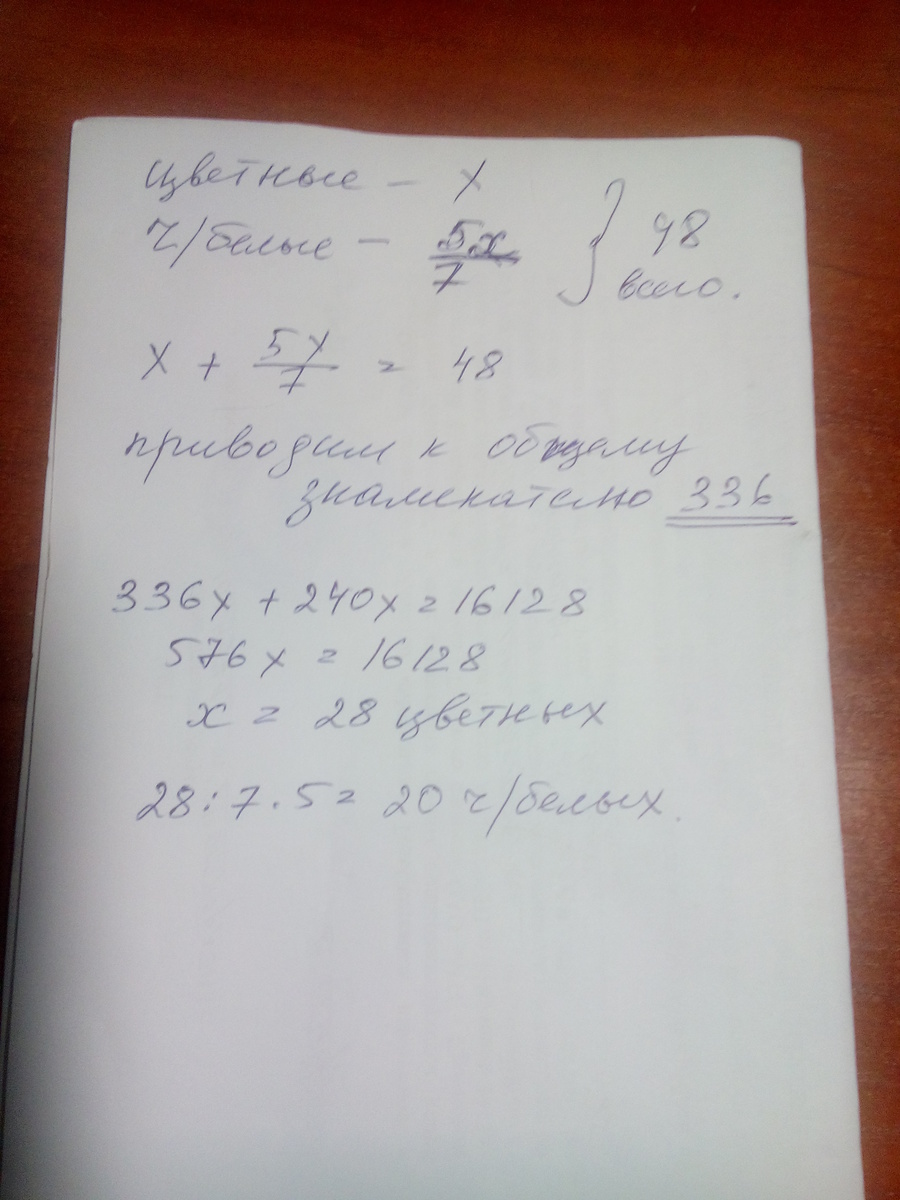 цветные – x
ч/белые – 5x/7 } 48
всего.
x + 5x/7 = 48
приводим к общему
знаменателю 336
336x + 240x = 16128
576x = 16128
x = 28 цветных
28 : 7 · 5 = 20 ч/белых.